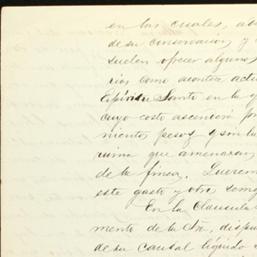 en las cuales, a
de su conservacion, y
suelen ofrecer algunos
rios como acontece actu
Espiritu Santo en la q
cuyo costo ascenderá po
niento pesos y son la
ruina que amenazan
de la finca.
este gasto y otro seme
En la Clausula
mento de la Sra, dispu
de su caudal líquido